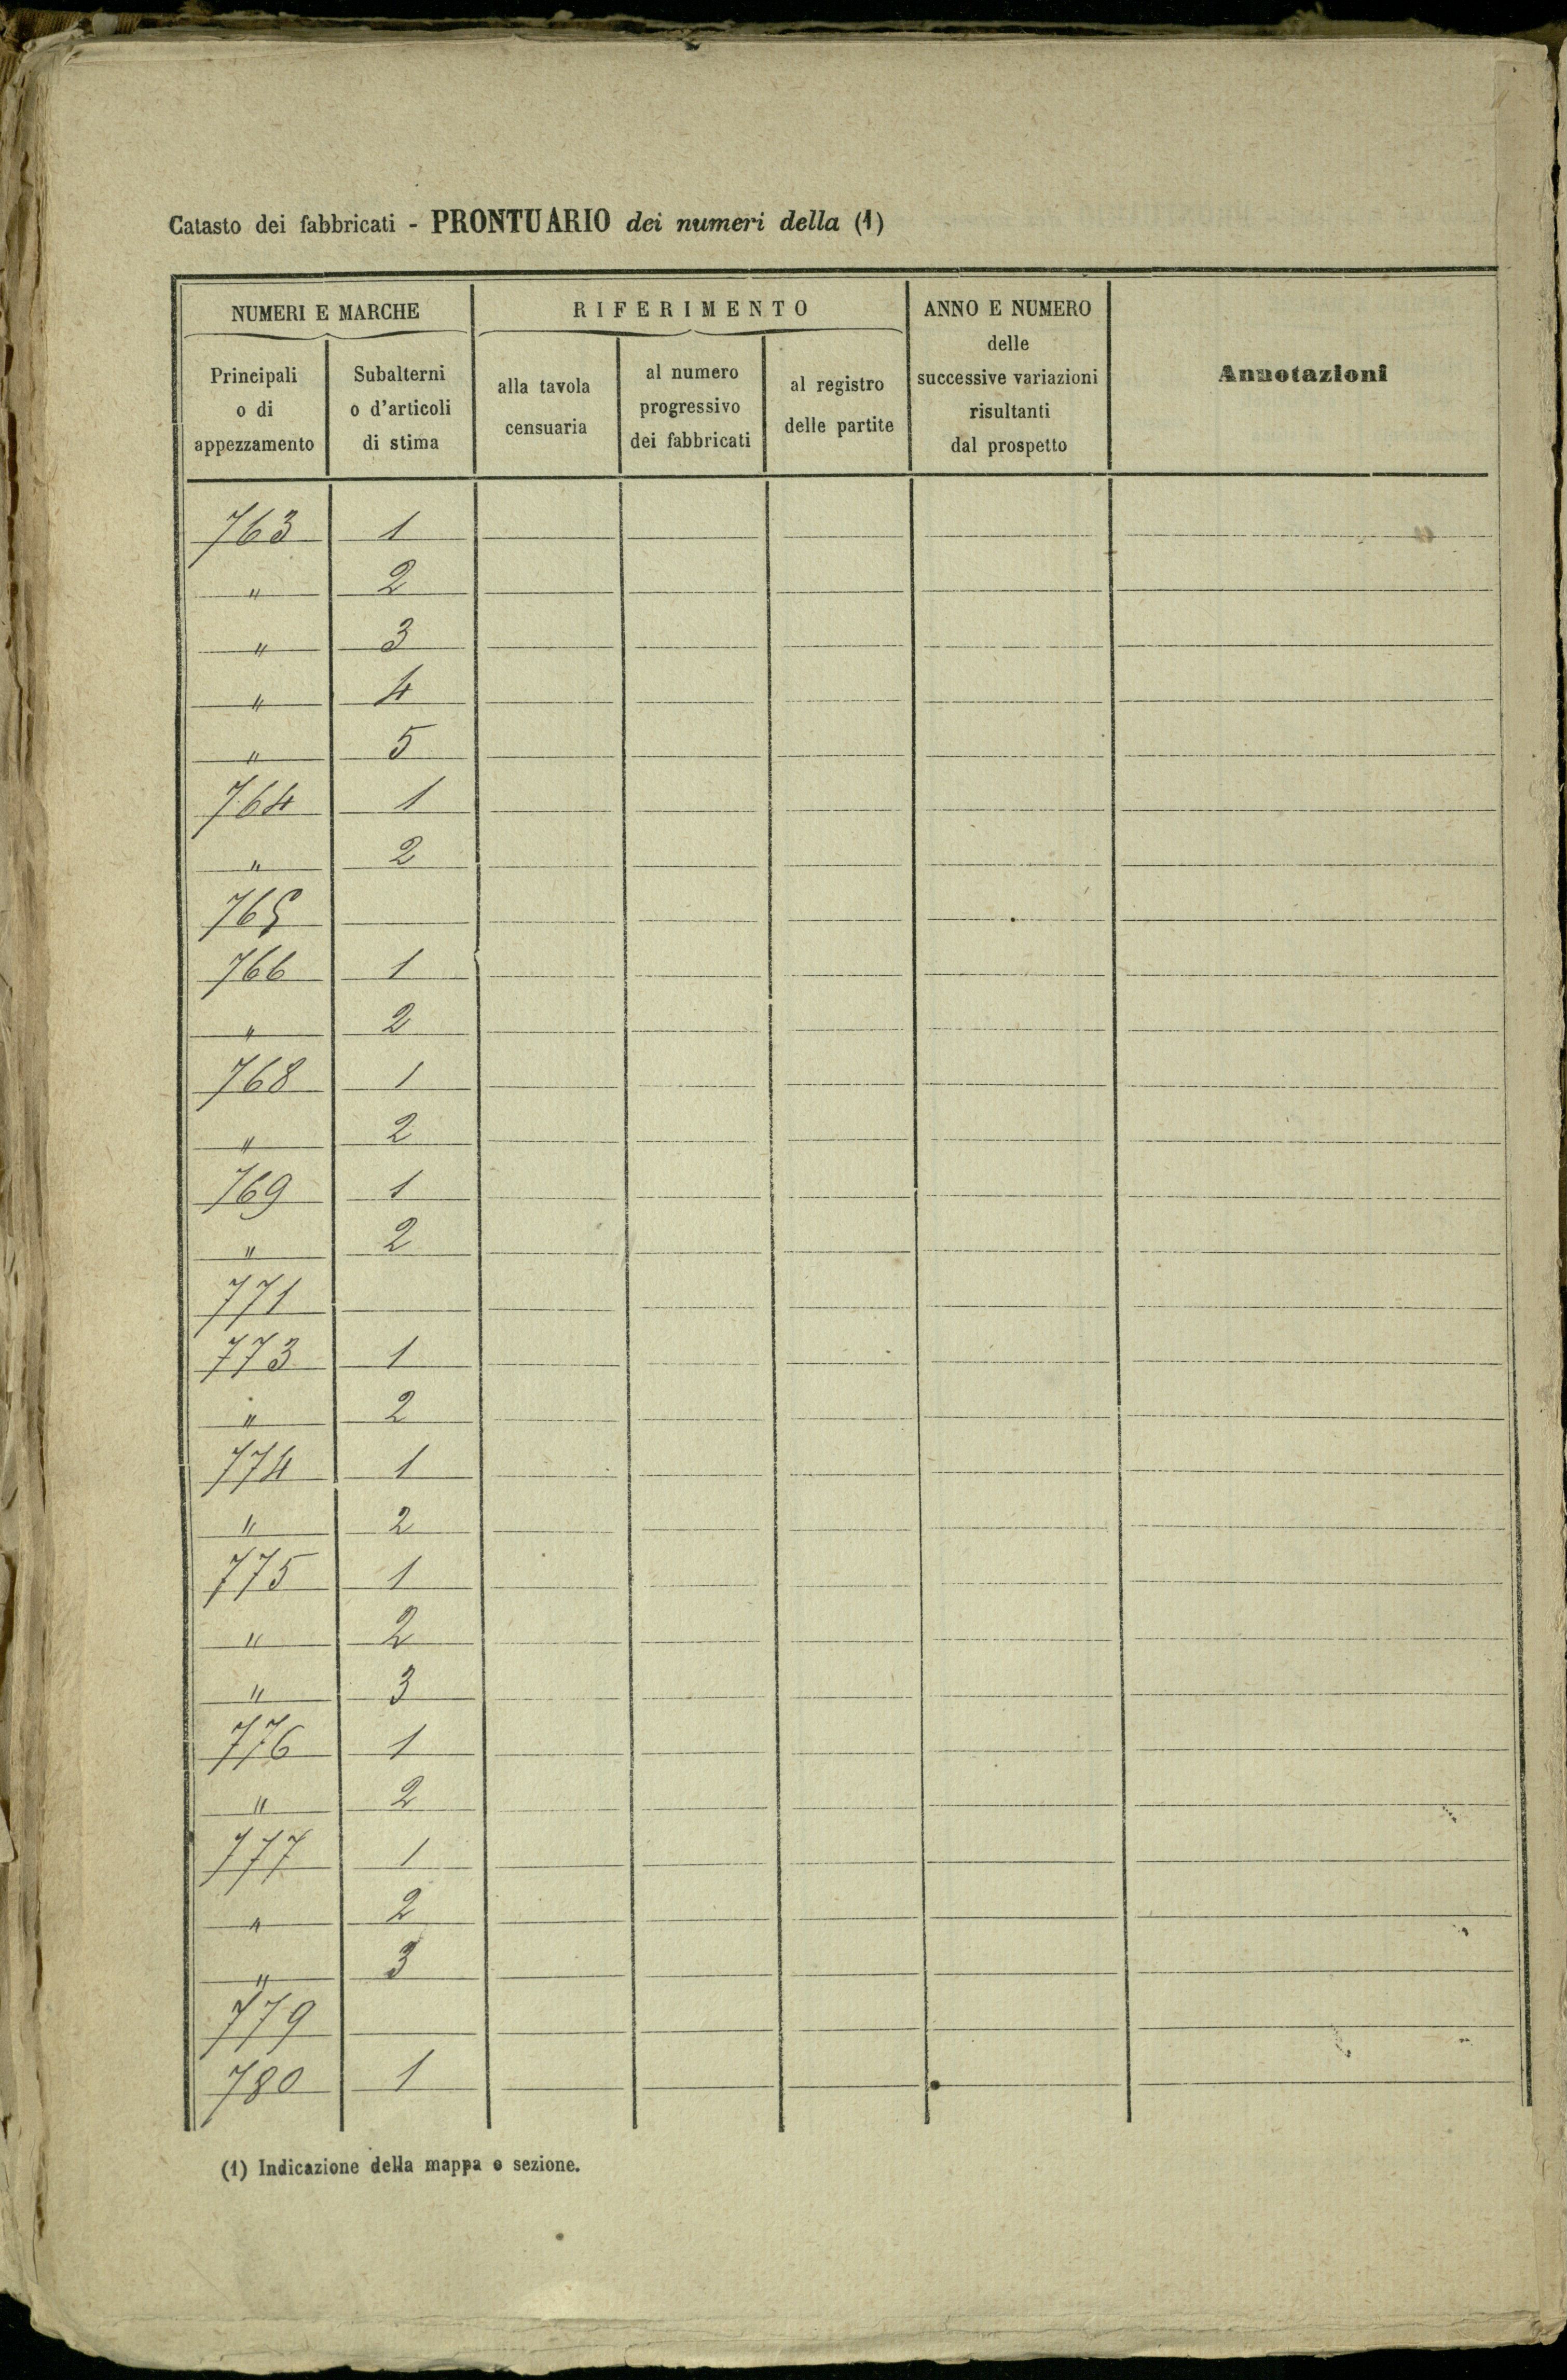 Catasto dei fabbricati - PRONTUARIO dei numeri della (1)
NUMERI E MARCHE
Principali o di appezzamento
Subalterni o d'articoli di stima
RIFERIMENTO
alla tavola censuaria
al numero progressivo dei fabbricati
al registro delle partite
ANNO E NUMERO delle successive variazioni risultanti dal prospetto
Annotazioni
763 1
" 2
" 3
" 4
" 5
764 1
" 2
765
766 1
" 2
768 1
" 2
769 1
" 2
771
773 1
" 2
774 1
" 2
775 1
" 2
" 3
776 1
" 2
777 1
" 2
" 3
779
780 1
(1) Indicazione della mappa o sezione.